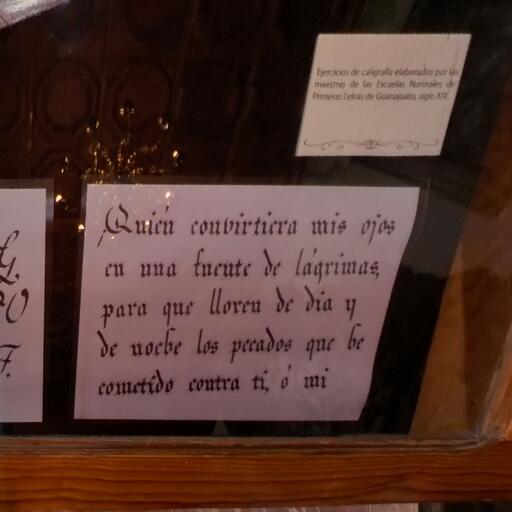 Ejercicios de caligrafía elaborados por las
maestras de las Escuelas Normales de
Primeras Letras de Guanajuato, siglo XIX.
¿Quién convirtiera mis ojos
en una fuente de lágrimas,
para que lloren de dia y
de noche los pecados que he
cometido contra ti, ó mi
G.
O
F.